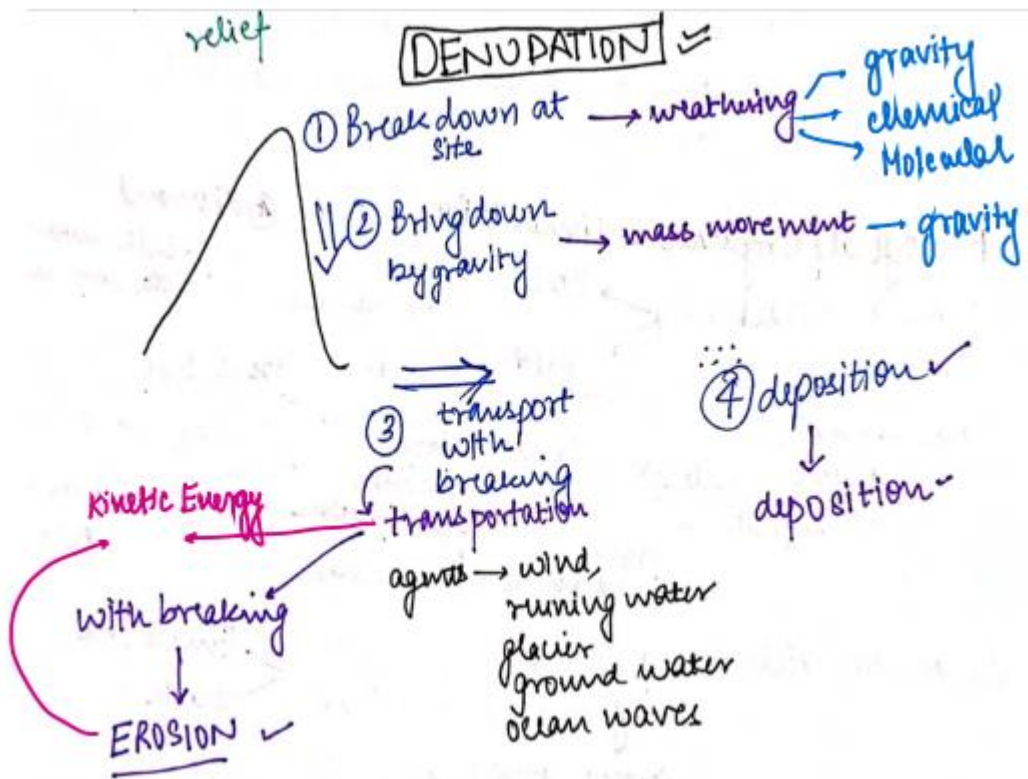 relief
DENUDATION
① Breakdown at → weathering
site
gravity
chemical
Moleculal
② Bring down → mass movement → gravity
by gravity
③ transport
with
breaking
transportation
④ deposition
deposition
Kinetic Energy
with breaking
EROSION
agents → wind,
running water
glacier
ground water
ocean waves